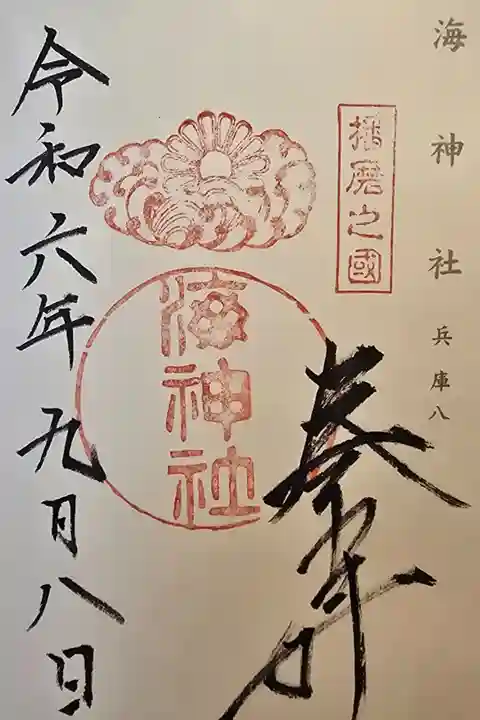 海神社 兵庫八
播磨之國
奉拝
海神社
令和六年九月八日